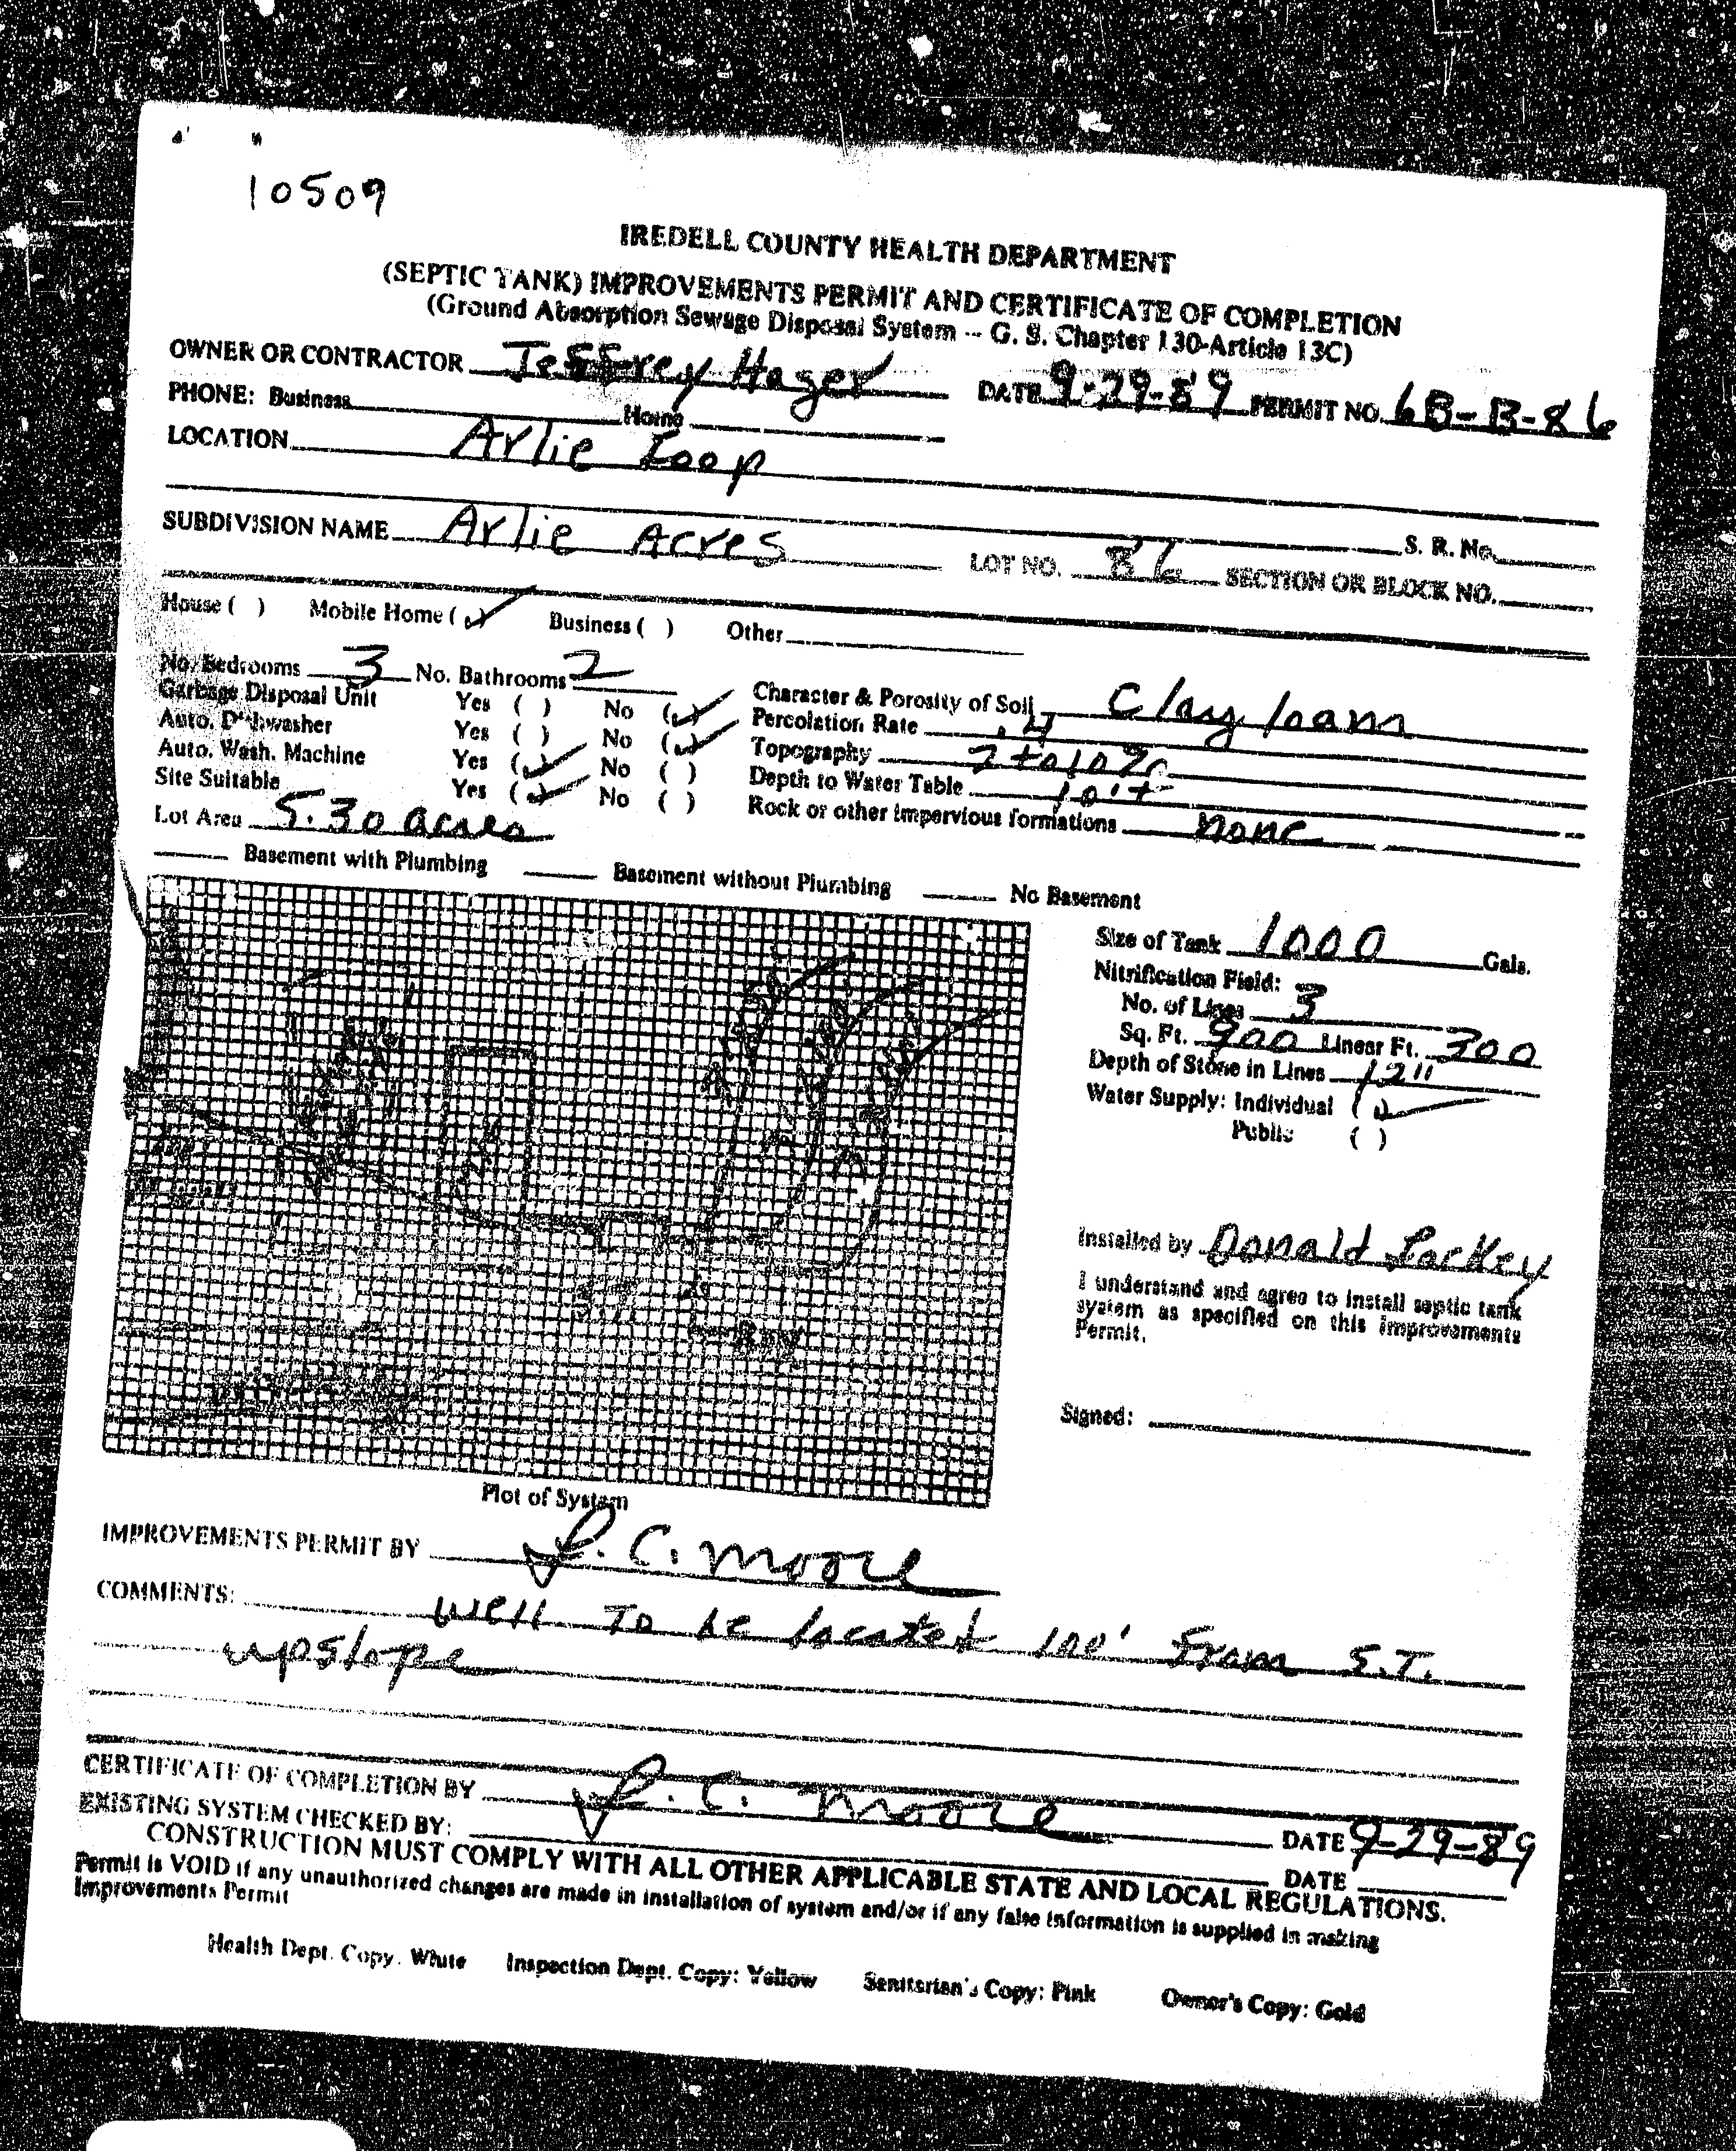 10509
IREDELL COUNTY HEALTH DEPARTMENT
(SEPTIC TANK) IMPROVEMENTS PERMIT AND CERTIFICATE OF COMPLETION
(Ground Absorption Sewage Disposal System -- G. S. Chapter 130-Article 13C)
OWNER OR CONTRACTOR Jeffrey Hager DATE 9-29-89 PERMIT NO. 6B-B-86
PHONE: Business Home
LOCATION Arlie Loop
S. R. No.
SUBDIVISION NAME Arlie Acres LOT NO. 86 SECTION OR BLOCK NO.
House ( ) Mobile Home (✓) Business ( ) Other
No. Bedrooms 3 No. Bathrooms 2
Garbage Disposal Unit Yes ( ) No (✓) Character & Porosity of Soil Clay loam
Auto. Dishwasher Yes ( ) No (✓) Percolation Rate .4
Auto. Wash. Machine Yes (✓) No ( ) Topography 2 to 10%
Site Suitable Yes (✓) No ( ) Depth to Water Table 10'+
Lot Area 5.30 acres Rock or other impervious formations none
Basement with Plumbing Basement without Plumbing No Basement
Size of Tank 1000 Gals.
Nitrification Field:
No. of Lines 3
Sq. Ft. 900 Linear Ft. 300
Depth of Stone in Lines 12"
Water Supply: Individual (✓)
Public ( )
Installed by Donald Lackey
I understand and agree to install septic tank
system as specified on this improvements
Permit.
Signed:
Plot of System
IMPROVEMENTS PERMIT BY L. C. Moore
COMMENTS: well To be located 100' from S.T.
upslope
CERTIFICATE OF COMPLETION BY L. C. Moore DATE 9-29-89
EXISTING SYSTEM CHECKED BY: DATE
CONSTRUCTION MUST COMPLY WITH ALL OTHER APPLICABLE STATE AND LOCAL REGULATIONS.
Permit is VOID if any unauthorized changes are made in installation of system and/or if any false information is supplied in making
Improvements Permit
Health Dept. Copy: White Inspection Dept. Copy: Yellow Sanitarian's Copy: Pink Owner's Copy: Gold